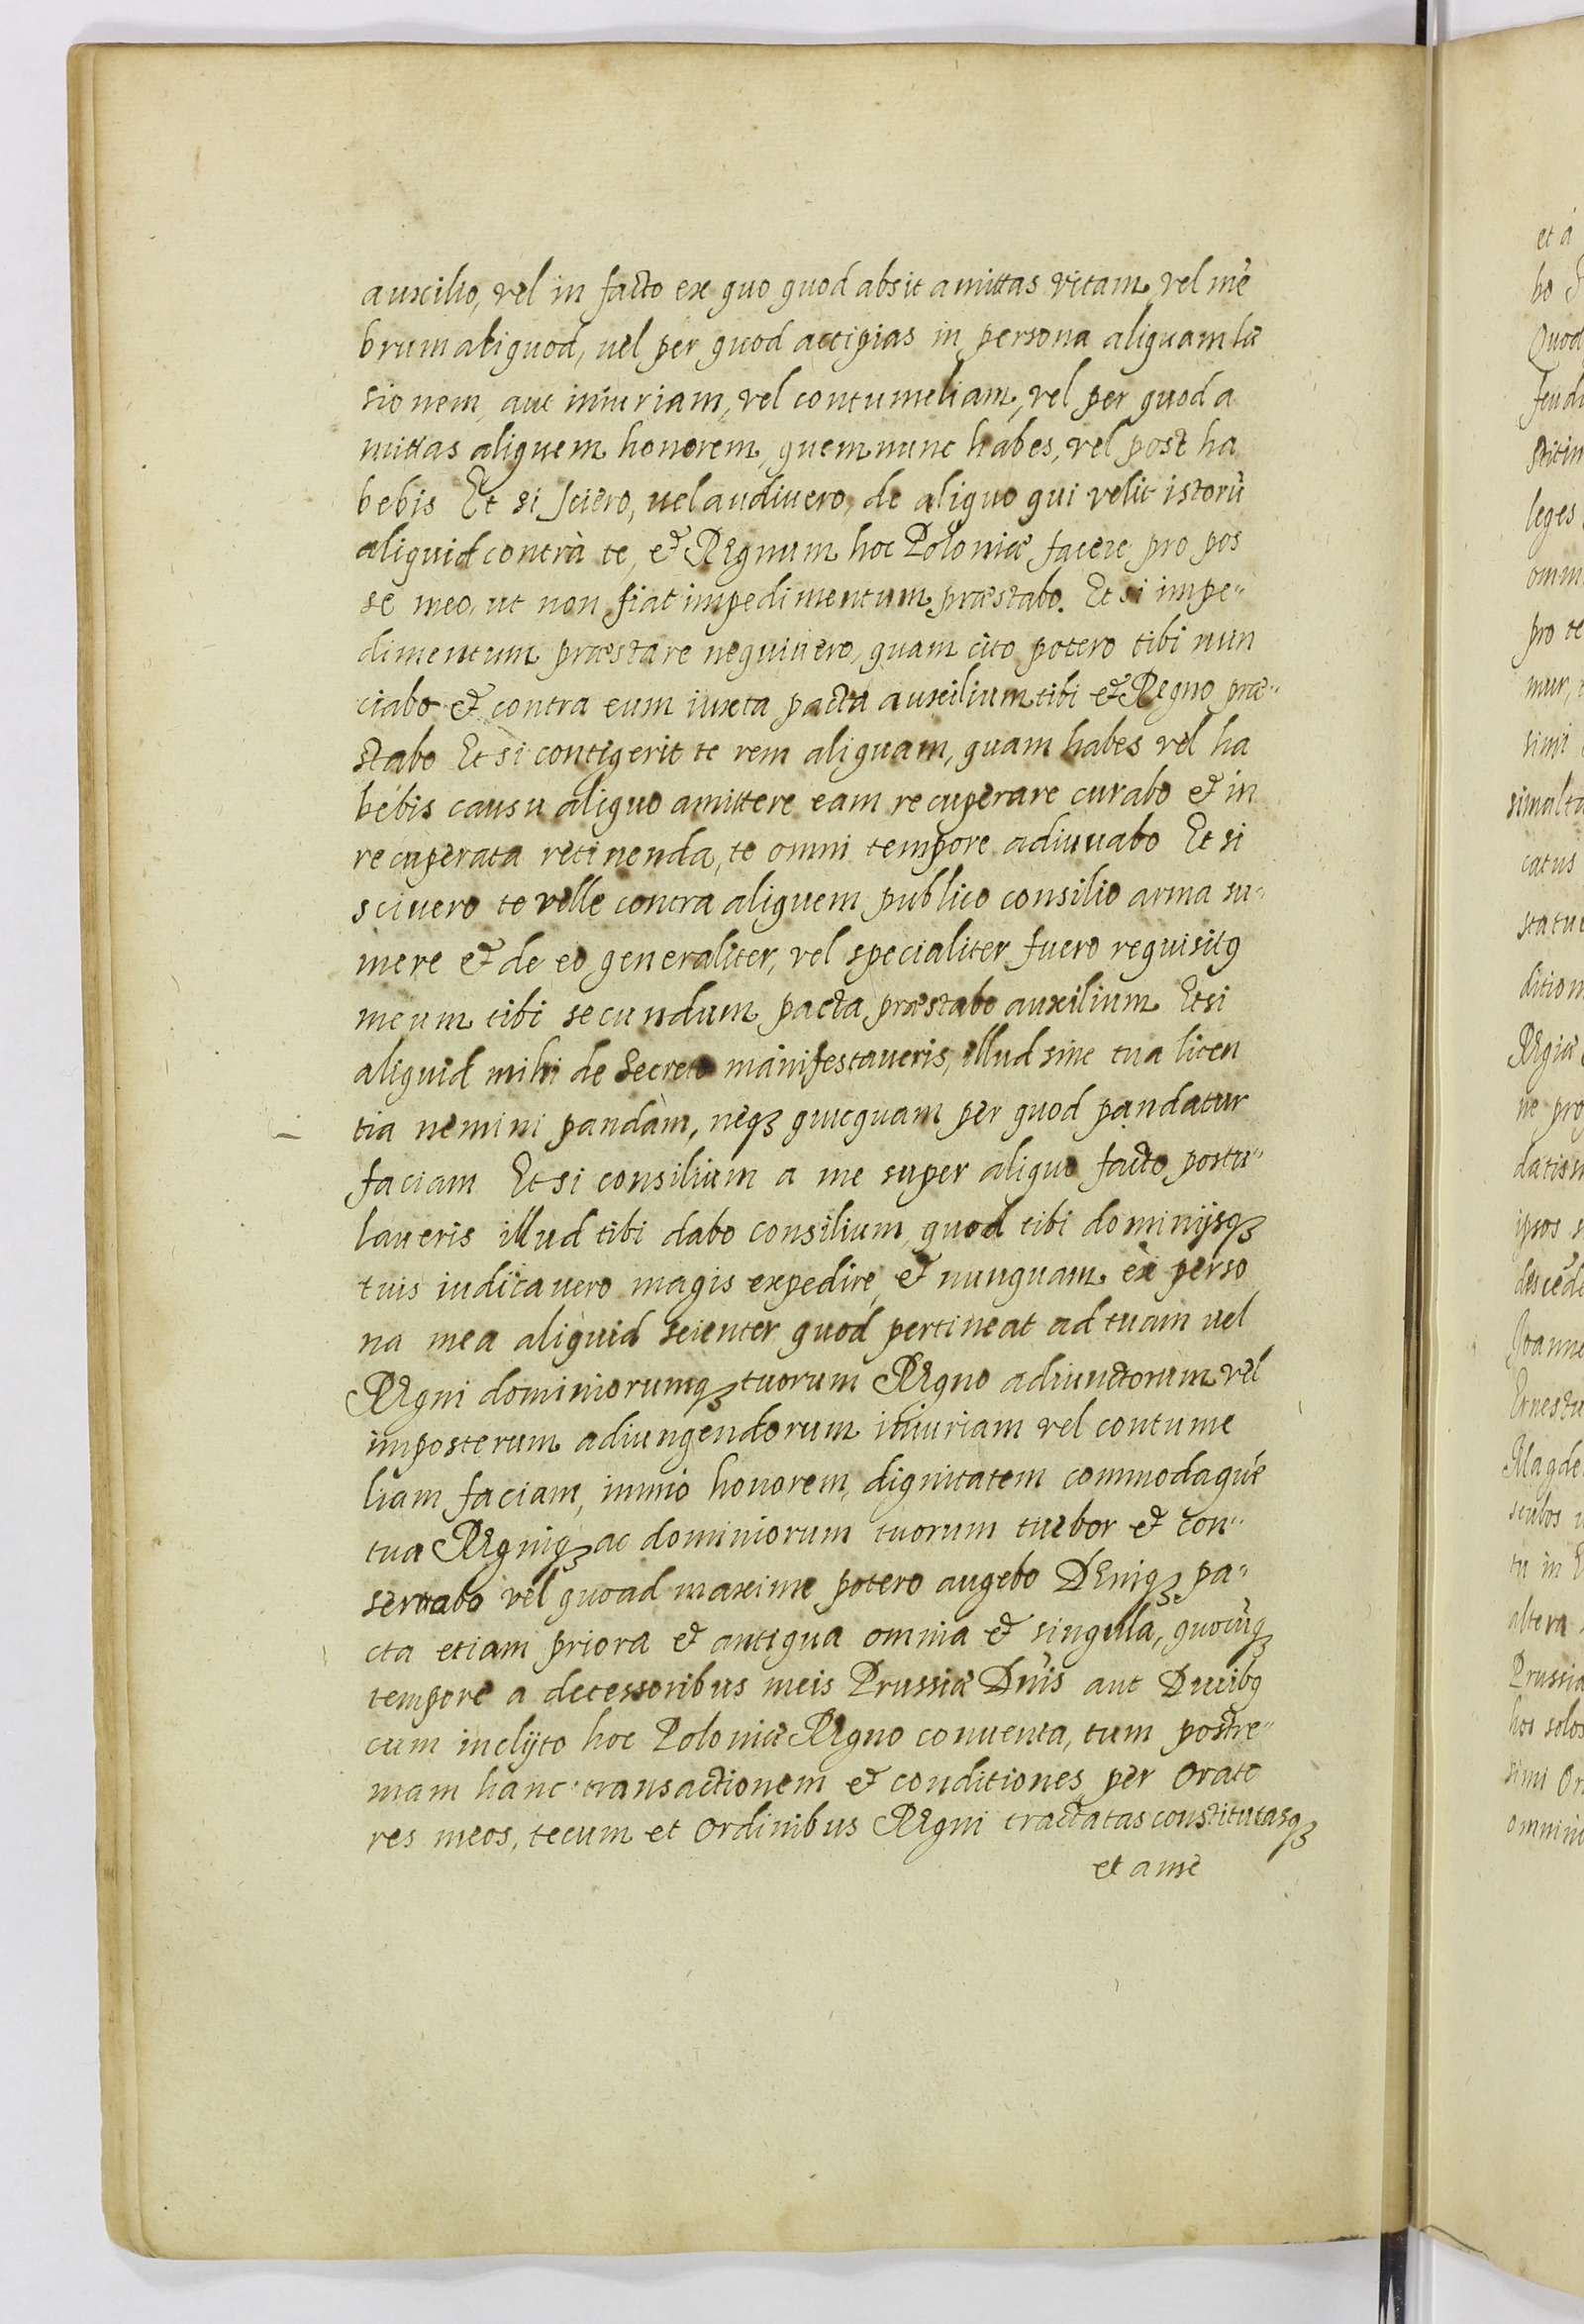 auxilio, vel in facto ex quo quod absit amittas vitam vel mē
brum aliquod, vel per quod accipias in persona aliquam læ
sionem, aut iniuriam, vel contumeliam, vel per quod a
mittas aliquem honorem, quem nunc habes, vel post ha
bebis Et si sciero, vel audivero, de aliquo qui velit istorū
aliquid contrà te, & Regnum hoc Poloniæ facere pro pos
se meo, ut non fiat impedimentum præstabo. Et si impe"
dimentum præstare nequivero, quam cito potero tibi nun
ciabo & contra eum iuxta pacta auxilium tibi & Regno præ"
stabo Et si contigerit te rem aliquam, quam habes vel ha
bebis causu aliquo amittere eam recuperare curabo & in
recuperata retinenda, te omni tempore adiuvabo Et si
scivero te velle contra aliquem publico consilio arma su"
mere & de eo generaliter, vel specialiter fuero requisitꝰ
meum tibi secundum pacta præstabo auxilium Et si
aliquid mihi de secreto manifestaveris, illud sine tua licen
tia nemini pandàm, neqꝫ quicquam per quod pandatur
faciam Et si consilium a me super aliquo facto postu"
laveris illud tibi dabo consilium, quod tibi dominijsqꝫ
tuis iudicavero magis expedire, & nunquam ex perso
na mea aliquid scienter quod pertineat ad tuam vel
Regni dominiorumqꝫ tuorum Regno adiunctorum vel
imposterum adiungendorum iniuriam vel contume
liam faciam, immò honorem, dignitatem commodaqúe
tua Regniqꝫ ac dominiorum tuorum tuebor & con"
servabo vel quoad maxime potero augebo DEniqꝫ pa"
cta etiam priora & antiqua omnia & singula, quocūqꝫ
tempore a decessoribus meis Prussiæ Dn̄is aut Ducibꝰ
cum inclÿto hoc Poloniæ Regno conventa, tum postre"
mam hanc transactionem & conditiones per Orato
res meos, tecum et Ordinibus Regni tractatas constitutasqꝫ
et a me
et á
bo
Quod
feudi
leges
omni
pro te
mur,
simi
simulta
catus
statu
dition
Regiæ
ne pro
dation
ipsos
descēde
Joanne
Ernestu
Magde
tu in
altera
Prussia
hos solos
simi Or
omnin